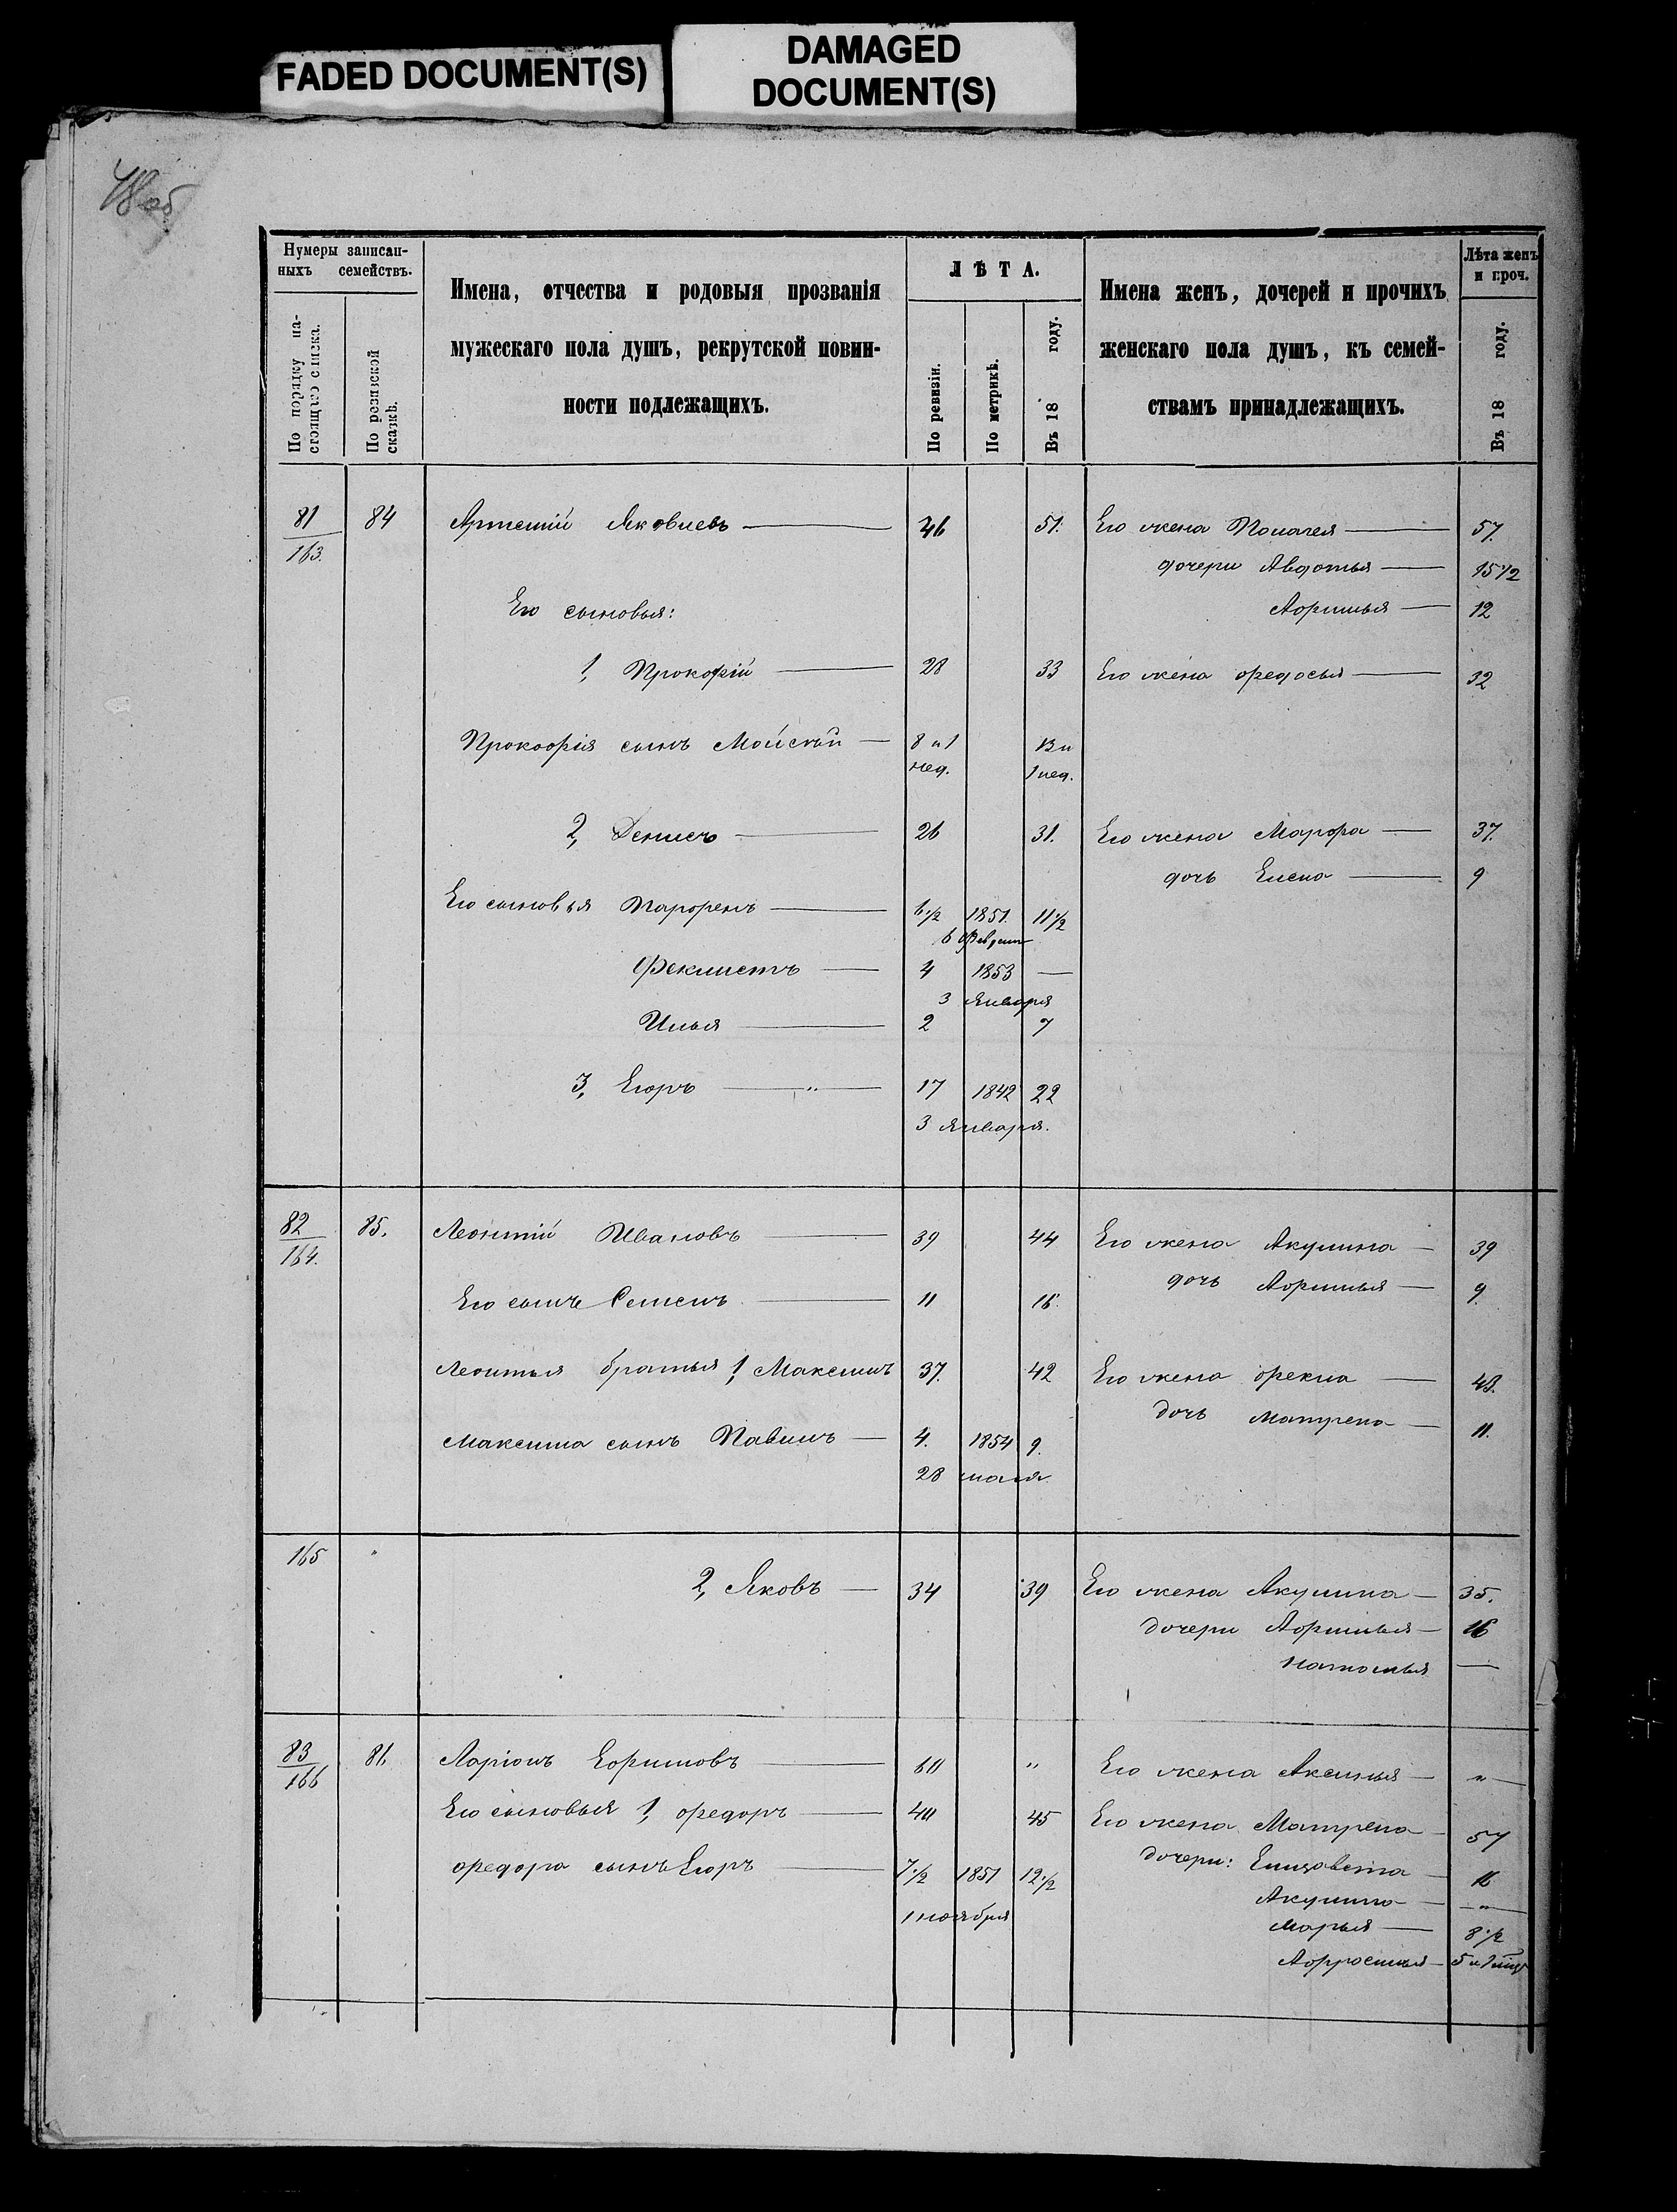 FADED DOCUMENT(S)
DAMAGED
DOCUMENT(S)
48 об
Нумеры записан-
ныхъ семействъ.
По порядку на-
стоящаго списка.
По ревизской
сказкѣ.
Имена, отчества и родовыя прозванія
мужескаго пола душъ, рекрутской повин-
ности подлежащихъ.
ЛѢТА.
По ревизіи.
По метрикѣ.
Въ 18 году.
Имена женъ, дочерей и прочихъ
женскаго пола душъ, къ семей-
ствамъ принадлежащихъ.
Лѣта женъ
и проч.
Въ 18 году.
81 84 Артемій Яковлевъ — 46 51. Его жена Пелагея — 57.
163. дочери Авдотья — 15 1/2
Его сыновья: Афимья — 12
1, Прокофій — 28 33 Его жена Федосья — 32
Прокофія сынъ Мойсѣй — 8 и 1 13 и
нед. 1 нед.
2, Денисъ — 26 31. Его жена Марфа — 37.
дочь Елена — 9
Его сыновья Парфенъ — 6 1/2 1851. 11 1/2
6 Февраля
Феклистъ — 4 1853 —
3 Января
Илья — 2 7
3, Егоръ — " — 17 1842 22
3 Января.
82 85. Леонтій Ивановъ — 39 44 Его жена Акулина — 39
164. дочь Афимья — 9.
Его сынъ Семенъ — 11 16.
Леонтья братья 1, Максимъ 37. 42 Его жена Фекла — 48.
дочь Матрена — 11.
Максима сынъ Павелъ — 4. 1854 9.
28 мая.
165 " 2, Яковъ — 34 39 Его жена Акулина — 35.
дочери Афимья — 16
Наталья —
83 81. Ларіонъ Ефимовъ — 60 " Его жена Аксинья — "
166 Его сыновья 1, Федоръ — 40 45 Его жена Матрена 57
Федора сынъ Егоръ — 7 1/2 1851 12 1/2 дочери: Елизавета — 16
Акулина — "
1 ноября Марья — 8 1/2
Афросинья —